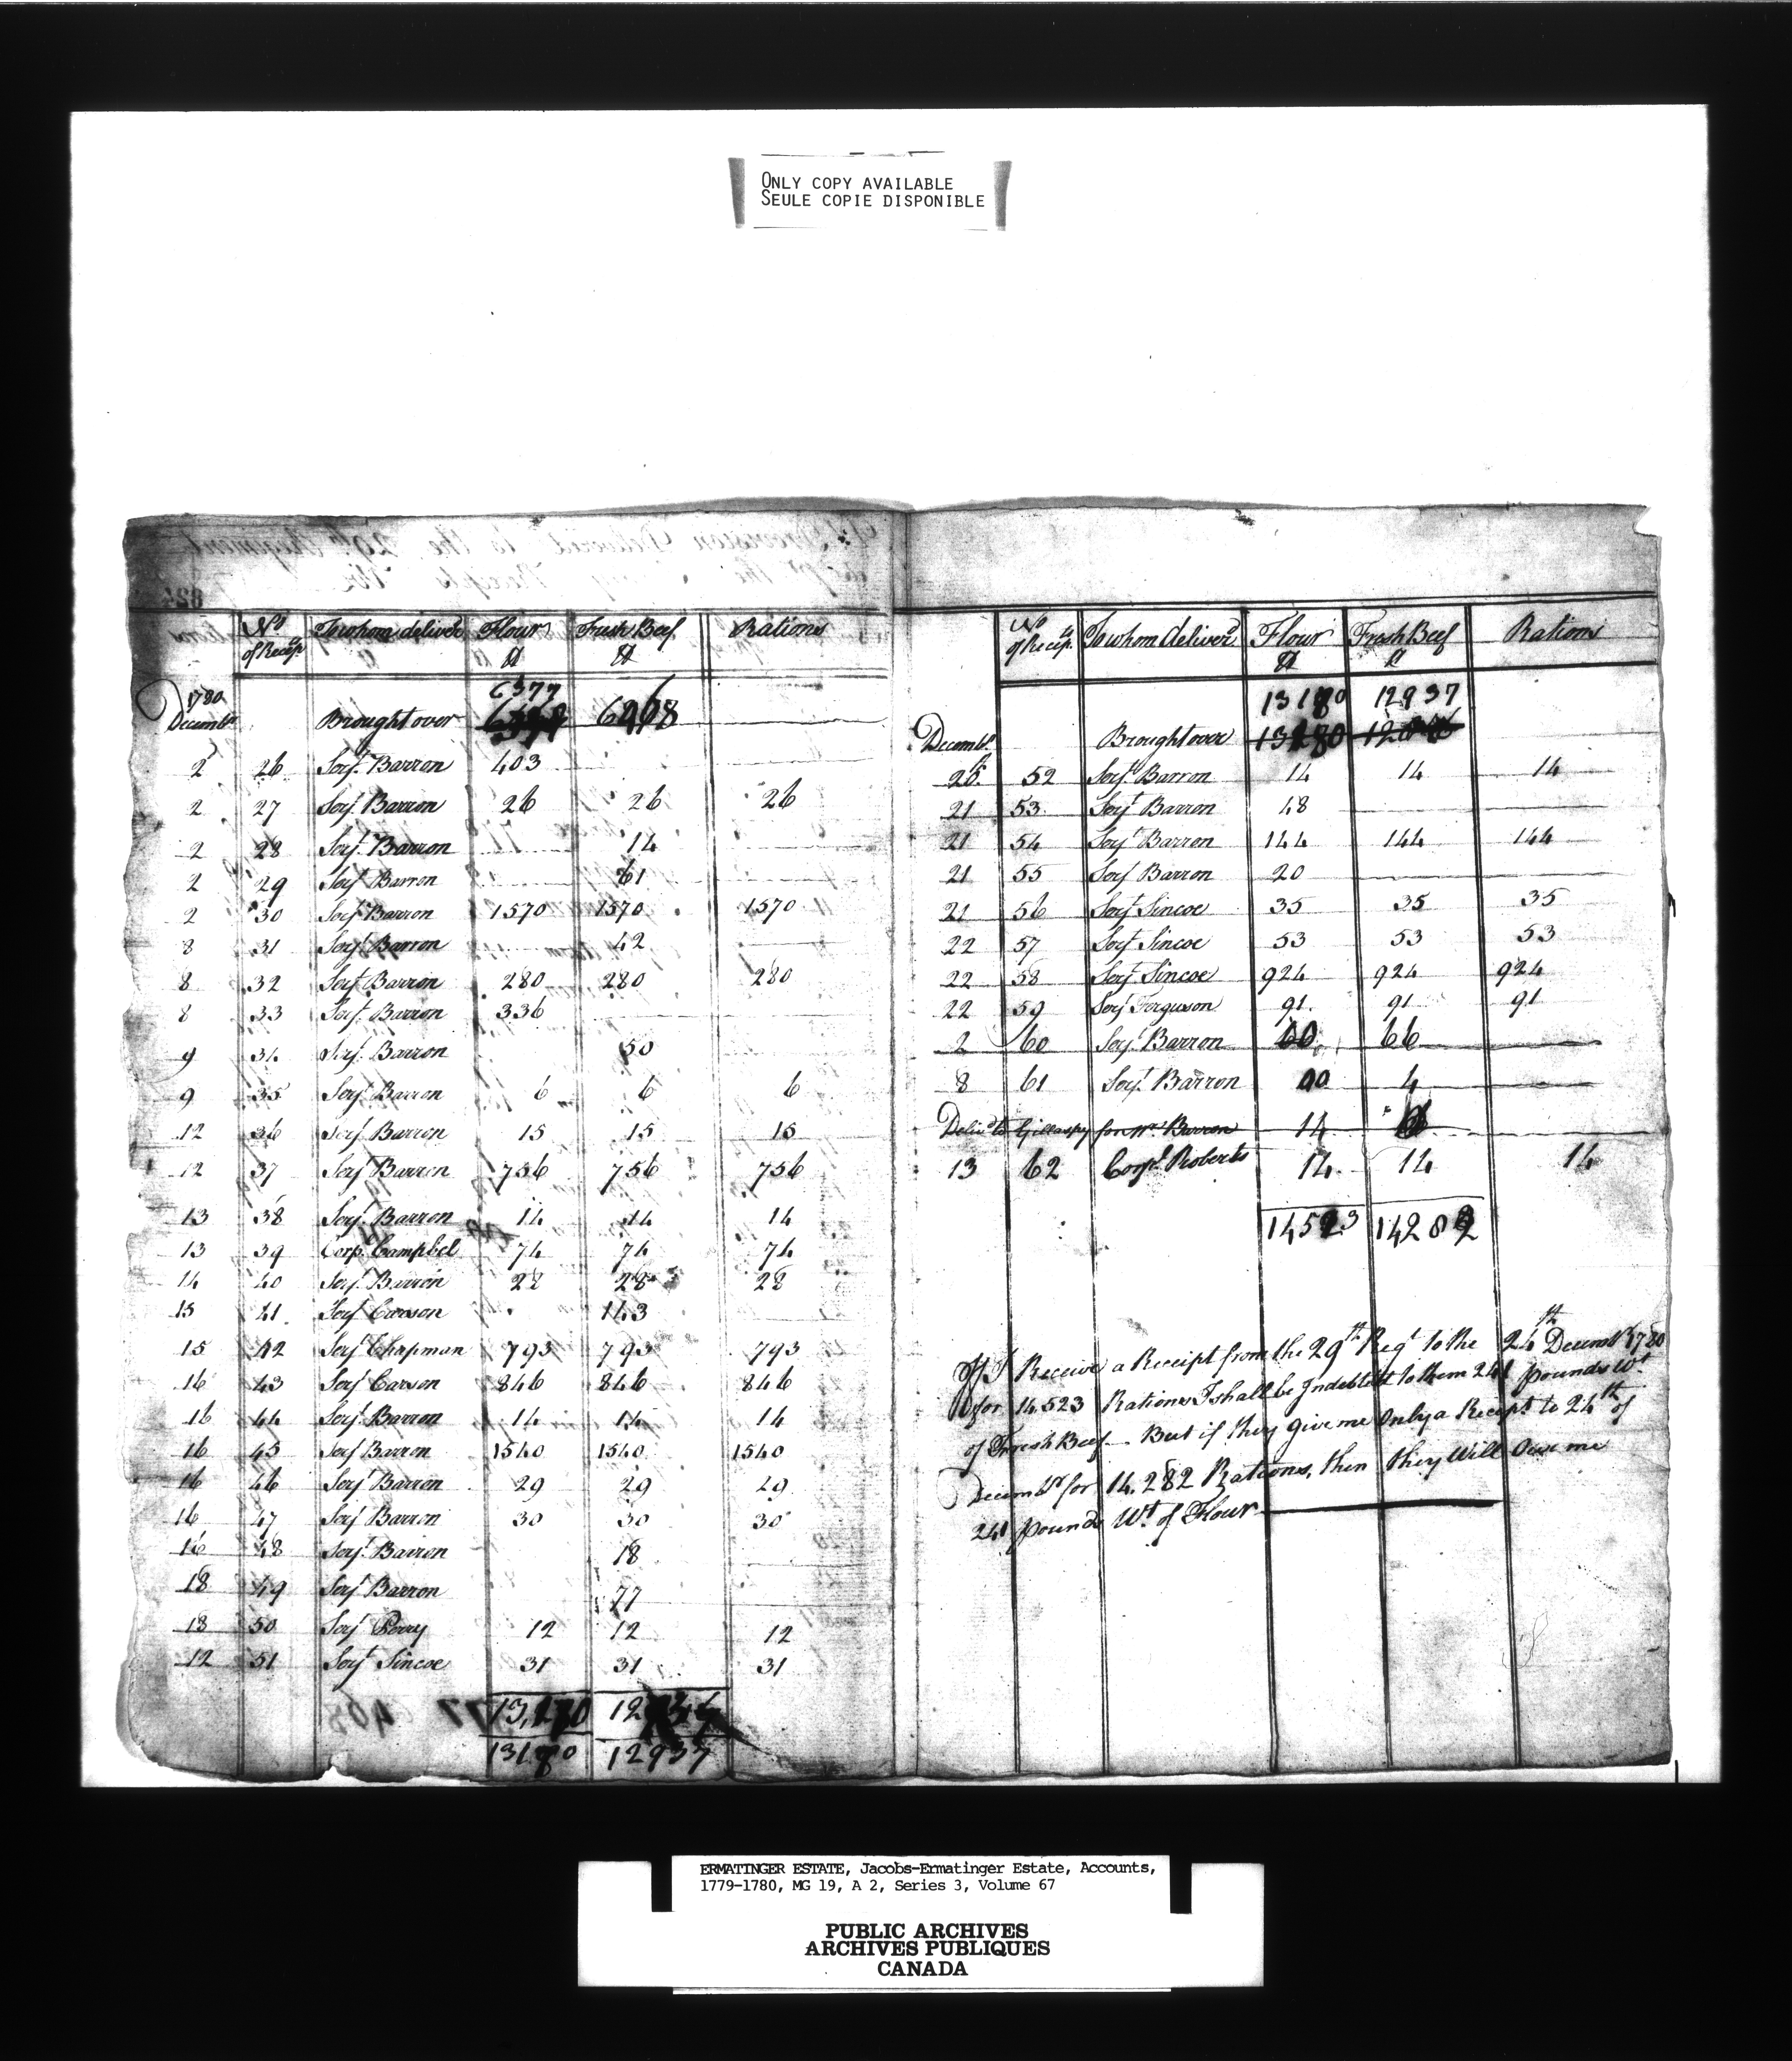 ONLY COPY AVAILABLE
SEULE COPIE DISPONIBLE
No of Recpts To whom deliver'd Flour lb Fresh Beef lb Rations
1780 Decembr Brought over 6377 6968
2 26 Serjt Barron 403
2 27 Serjt Barron 26 26 26
2 28 Serjt Barron 14
2 29 Serjt Barron 61
2 30 Serjt Barron 1570 1570 1570
8 31 Serjt Barron 42
8 32 Serjt Barron 280 280 280
8 33 Serjt Barron 336
9 34 Serjt Barron 50
9 35 Serjt Barron 6 6 6
12 36 Serjt Barron 15 15 15
12 37 Serjt Barron 756 756 756
13 38 Serjt Barron 14 14 14
13 39 Corpl Campbel 74 74 74
14 40 Serjt Barron 28 28 28
15 41 Serjt Carson 143
15 42 Serjt Chapman 793 793 793
16 43 Serjt Carson 846 846 846
16 44 Serjt Barron 14 14 14
16 45 Serjt Barron 1540 1540 1540
16 46 Serjt Barron 29 29 29
16 47 Serjt Barron 30 30 30
16 48 Serjt Barron 18
18 49 Serjt Barron 77
18 50 Serjt Perry 12 12 12
12 51 Serjt Sincoe 31 31 31
13180 12937
No of Recpts To whom deliver'd Flour lb Fresh Beef lb Rations
13180 12937
Decembr Brought over
20 52 Serjt Barron 14 14 14
21 53 Serjt Barron 48
21 54 Serjt Barron 144 144 144
21 55 Serjt Barron 20
21 56 Serjt Sincoe 35 35 35
22 57 Serjt Sincoe 53 53 53
22 58 Serjt Sincoe 924 924 924
22 59 Serjt Ferguson 91 91 91
2 60 Serjt Barron 66
8 61 Serjt Barron 4
Delivd to Gillaspy for Barron 14
13 62 Corpl Roberts 14 14 14
14523 14282
If I Receive a Receipt from the 29th Regt to the 24th Decembr 1780
for 14523 Rations I shall be Indebted to them 241 pounds Wt
of Fresh Beef — But if they give me Only a Recipt to 24th of
Decembr for 14.282 Rations, then they Will Owe me
241 pounds Wt of Flour
ERMATINGER ESTATE, Jacobs-Ermatinger Estate, Accounts,
1779-1780, MG 19, A 2, Series 3, Volume 67
PUBLIC ARCHIVES
ARCHIVES PUBLIQUES
CANADA